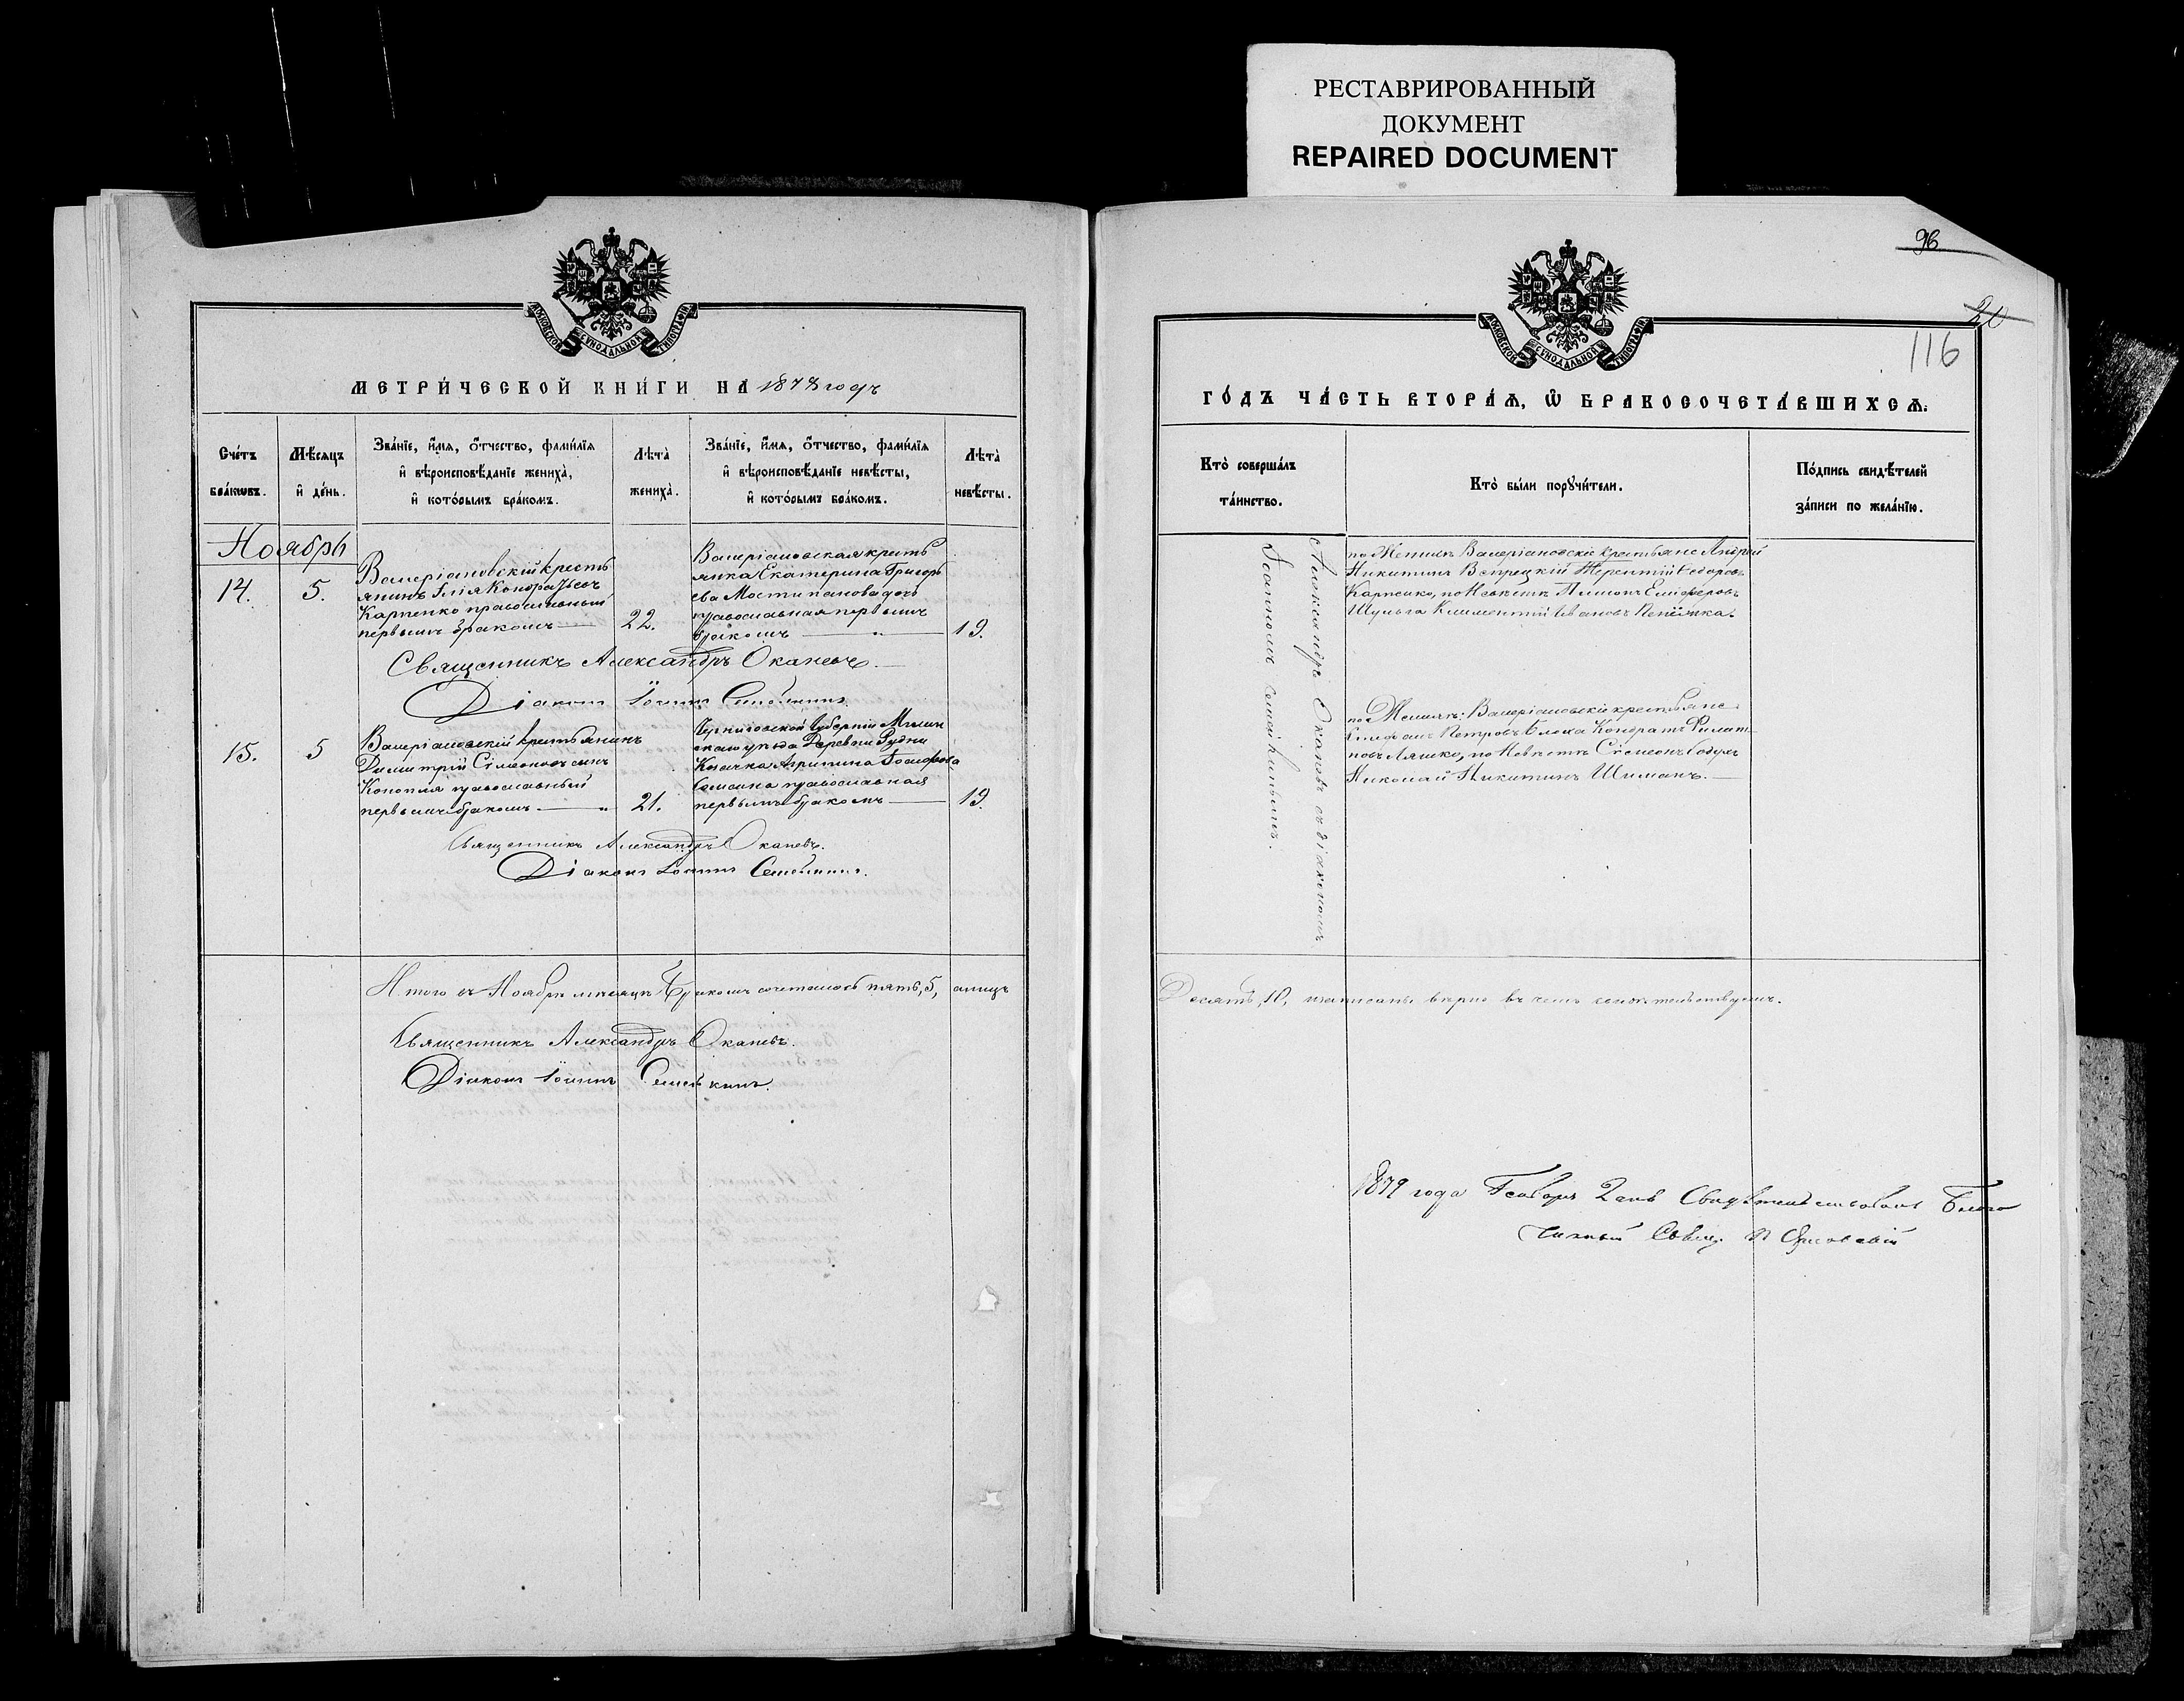 РЕСТАВРИРОВАННЫЙ
ДОКУМЕНТ
REPAIRED DOCUMENT
МОСКОВСКОЙ СѴНОДАЛЬНОЙ ТИПОГРАФІИ
МЕТРИ́ЧЕСКОЙ КНИ́ГИ НА 1878 годъ
Сче́тъ бра́кѡвъ.
Мѣ́сяцъ и҆ де́нь.
Зва́нїе, и҆́мя, ѻ҆́тчество, фами́лїя
и҆ вѣроисповѣ́данїе жениха̀,
и҆ кото́рымъ бра́комъ.
Лѣ́та жениха̀.
Зва́нїе, и҆́мя, ѻ҆́тчество, фами́лїя
и҆ вѣроисповѣ́данїе невѣ́сты,
и҆ кото́рымъ бра́комъ.
Лѣ́та невѣ́сты.
Ноябрь
14.
5.
Валеріановскій кресть
янинъ Илія Кондратьевъ
Карпенко православный
первымъ бракомъ
22.
Валеріановская кресть
янка Екатерина Григорь
ева Мостипанова дочь
православная первымъ
бракомъ
19.
Священникъ Александръ Оканевъ.
Діаконъ Іоаннъ Семейкинъ.
15.
5
Валеріановскій крестьянинъ
Димитрій Сімеоновъ сынъ
Конопля православный
первымъ бракомъ
21.
Черниговской Губерніи Мглин
скаго уѣзда Деревни Рудни
Козачка Агрипина Іосифова
православная
первымъ бракомъ
19.
Священникъ Александръ Оканевъ.
Діаконъ Іоаннъ Семейкинъ.
Итого въ Ноябрѣ мѣсяцѣ Бракомъ сочеталось пять, 5, а лицъ
Священникъ Александръ Оканевъ.
Діаконъ Іоаннъ Семейкинъ.
96
20
116
МОСКОВСКОЙ СѴНОДАЛЬНОЙ ТИПОГРАФІИ
ГО́ДЪ ЧА́СТЬ ВТОРА́Ѧ, Ѡ҆ БРАКОСОЧЕТА́ВШИХСѦ.
Кто̀ соверша́лъ
та́инство.
Кто̀ бы́ли порꙋчи́тели.
По́дпись свидѣ́телей
за́писи по жела́нїю.
Александръ Окановъ съ діакономъ
Іоанномъ Семейкинымъ.
по Женихѣ Валеріановскіе крестьяне Андрей
Никитинъ Терентій Ѳедоровъ
Карпенко, по Невѣстѣ Пименъ Елиферовъ
Шульга Климентій Ивановъ
по Женихѣ: Валеріановскіе крестьяне
Петровъ Блоха Кондратъ Филип
повъ Ляшко, по Невѣстѣ Сімеонъ
Николай Никитинъ Шиманъ.
Десять, 10, записаны вѣрно въ чемъ свидѣтельствуемъ.
1879 года Генваря 2 дня Свидѣтельствовалъ Благо
чинный Свящ.